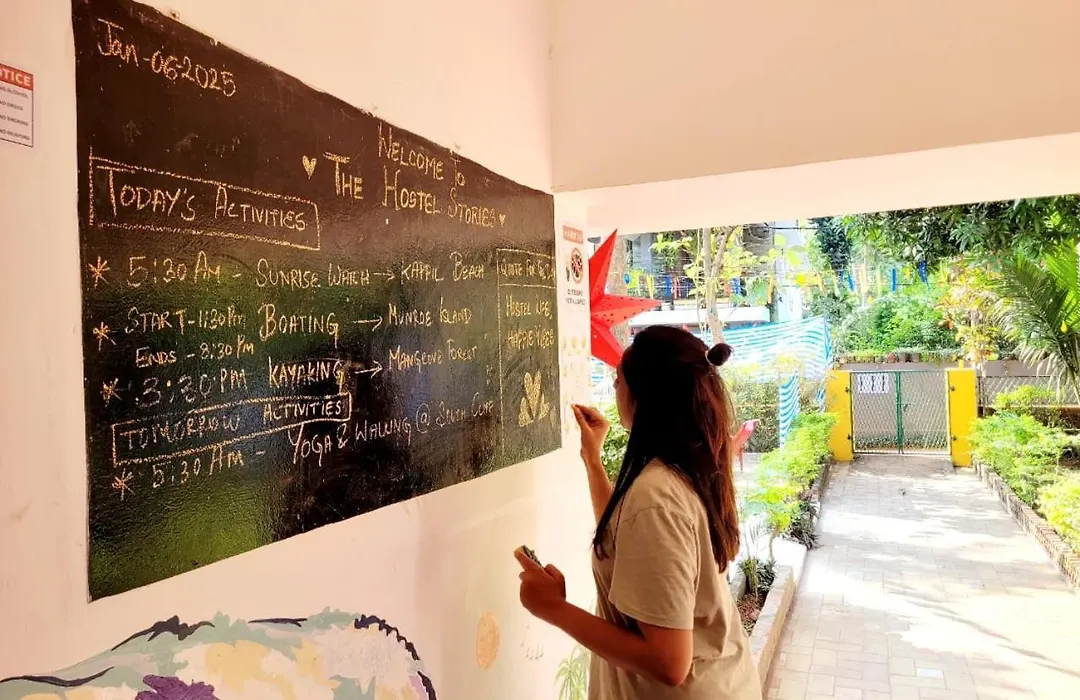 Jan-06-2025
WELCOME To
THE HOSTEL STORIES
TODAY'S ACTIVITIES
5:20 AM - SUNRISE WATCH → KAPPIL BEACH
START - 1:30 PM BOATING → MUNROE ISLAND
ENDS - 8:30 PM
3:30 PM KAYAKING → MANGROVE FOREST
TOMORROW ACTIVITIES
5:30 AM - YOGA &
QUOTE FOR
HOSTEL LIFE,
HAPPIE VIBES
NOTICE